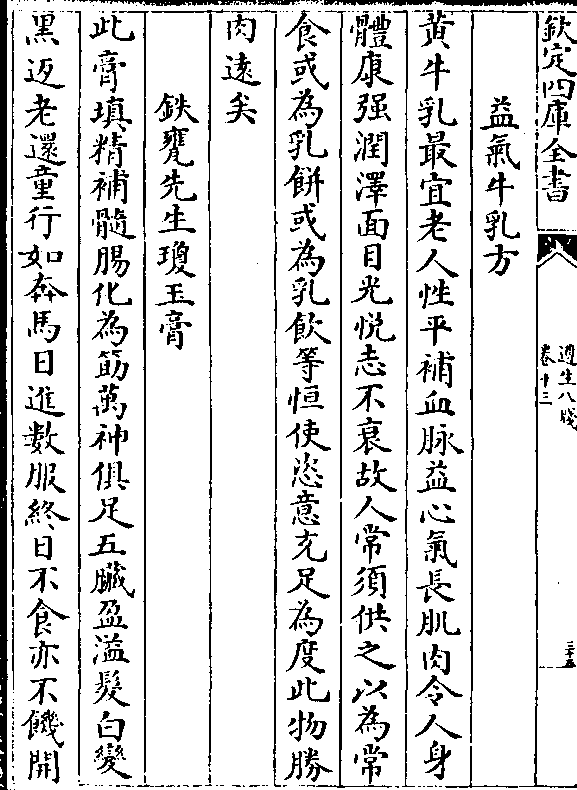 欽定四庫全書
遵生八牋
卷十三
益氣牛乳方
黃牛乳最宜老人性平補血脉益心氣長肌肉令人身
體康强潤澤面目光悅志不衰故人常須供之以為常
食或為乳餅或為乳飲等恒使恣意充足為度此物勝
肉逺矣
鉄甕先生瓊玉膏
此膏填精補髓腸化為筋萬神俱足五臟盈溢髮白變
黒返老還童行如奔馬日進數服終日不食亦不饑開